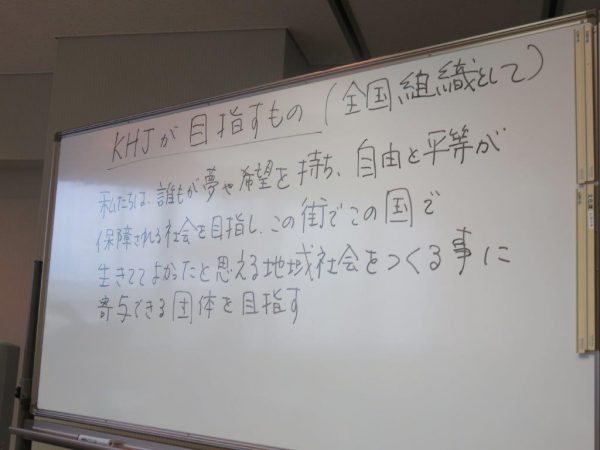 KHJが目指すもの(全国組織として)
私たちは、誰もが夢や希望を持ち、自由と平等が
保障される社会を目指し、この街でこの国で
生きててよかったと思える地域社会をつくる事に
寄与できる団体を目指す